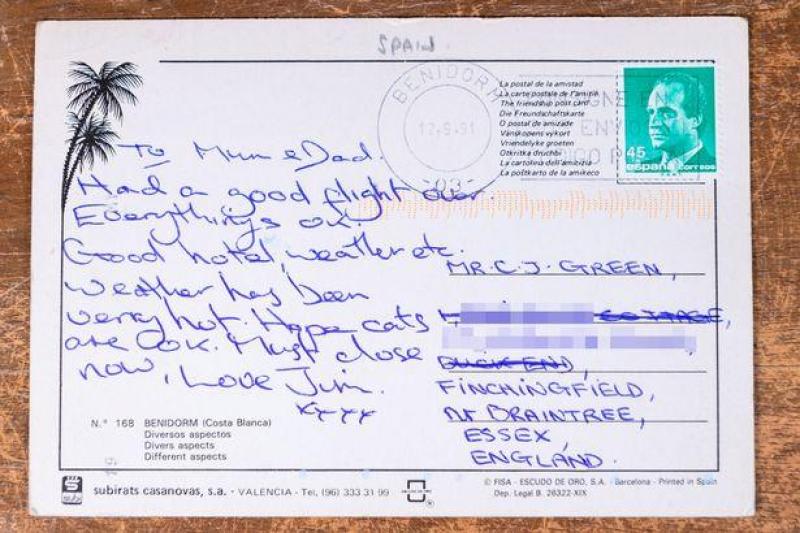 SPAIN
BENIDORM
12-9-91
-03-
La postal de la amistad
La carte postale de l'amitié
The friendship post card
Die Freundschaftskarte
O postal de amizade
Vänskapens vykort
Vriendelyke groeten
Otkritka druchbi
La cartolina dell'amicizia
La poŝtkarto de la amikeco
45
españa correos
To Mum & Dad.
Had a good flight over
Everything's ok.
Good hotel, weather etc.
Weather has been
verry hot. Hope cats
are ok. Must close
now, Love Jim.
xxxx
MR. C. J. GREEN,
COTTAGE,
DUCK END,
FINCHINGFIELD,
Nr BRAINTREE,
ESSEX,
ENGLAND.
N.° 168 BENIDORM (Costa Blanca)
Diversos aspectos
Divers aspects
Different aspects
subirats casanovas, s.a. - VALENCIA - Tel. (96) 333 31 99
© FISA - ESCUDO DE ORO, S.A. - Barcelona - Printed in Spain
Dep. Legal B. 26322-XIX